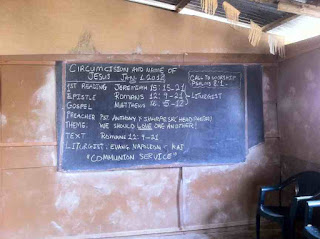 CIRCUMCISION AND NAME OF
JESUS JAN 1, 2012
1ST READING JEREMIAH 15: 15-21
EPISTLE ROMANS 12: 9-21
GOSPEL MATTHEWS 16: 5-12
LITURGIST
CALL TO WORSHIP
PSALMS 8:1-
PREACHER PST. ANTHONY
THEME: WE SHOULD LOVE ONE ANOTHER!
TEXT ROMANS 12: 9-21
LITURGIST: EVANG. NAPOLEON
"COMMUNION SERVICE"